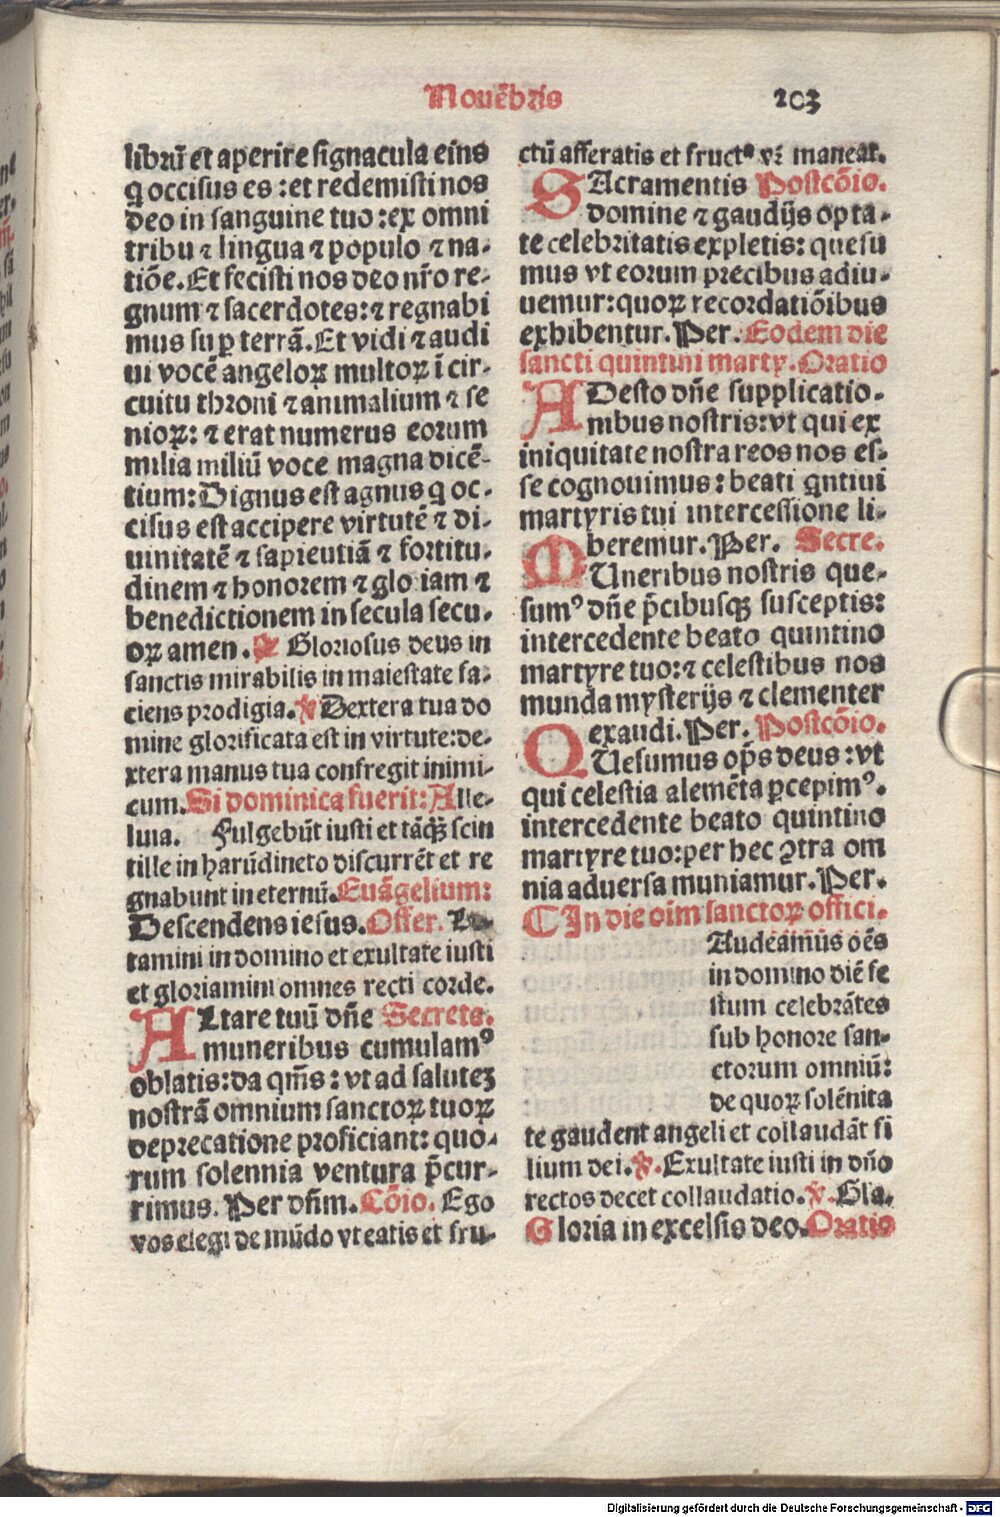 Nouēbris
203
librū et aperire signacula eius
q̄ occisus es : et redemisti nos
deo in sanguine tuo : ex omni
tribu ⁊ lingua ⁊ populo ⁊ na-
tiōe. Et fecisti nos deo nr̄o re-
gnum ⁊ sacerdotes: ⁊ regnabi
mus sup̱ terrā. Et vidi ⁊ audi
ui vocē angeloꝝ multoꝝ ī cir-
cuitu throni ⁊ animalium ⁊ se
nioꝝ: ⁊ erat numerus eorum
milia miliū voce magna dicē-
tium: Dignus est agnus q̄ oc-
cisus est accipere virtutē ⁊ di-
uinitatē ⁊ sapientiā ⁊ fortitu-
dinem ⁊ honorem ⁊ glo iam ⁊
benedictionem in secula secu-
oꝝ amen. ꝶ Gloriosus deus in
sanctis mirabilis in maiestate fa-
ciens prodigia. ℣ Dextera tua do
mine glorificata est in virtute: de-
xtera manus tua confregit inimi-
cum. Si dominica fuerit: Alle-
luia. Fulgebūt iusti et tāꝙȝ scin
tille in harūdineto discurrēt et re
gnabunt in eternū. Euāgelium:
Descendens iesus. Offer. Le-
tamini in domino et exultate iusti
et gloriamini omnes recti corde.
ALtare tuū dn̄e Secreta.
muneribus cumulamꝰ
oblatis: da qm̄s : vt ad saluteȝ
nostrā omnium sanctoꝝ tuoꝝ
deprecatione proficiant: quo-
rum solennia ventura p̄cur-
rimus. Per dn̄m. Cōio. Ego
vos elegi de mūdo vt eatis et fru-
ctū afferatis et fructꝰ vr̄ maneat.
SAcramentis Postcōio.
domine ⁊ gaudijs opta-
te celebritatis expletis: quesu
mus vt eorum precibus adiu-
uemur: quoꝝ recordatiōibus
exhibentur. Per. Eodem die
sancti quintini marty. Oratio
ADesto dn̄e supplicatio-
nibus nostris: vt qui ex
iniquitate nostra reos nos es-
se cognouimus: beati q̄ntini
martyris tui intercessione li-
beremur. Per. Secre.
MUneribus nostris que-
sumꝰ dn̄e p̄cibusqȝ susceptis:
intercedente beato quintino
martyre tuo: ⁊ celestibus nos
munda mysterijs ⁊ clementer
exaudi. Per. Postcōio.
QUesumus op̄s deus : vt
qui celestia alemēta ꝑcepimꝰ.
intercedente beato quintino
martyre tuo: per hec ꝯtra om
nia aduersa muniamur. Per.
⸿ In die oīm sanctoꝝ offici.
Audeamus oēs
in domino diē fe
stum celebrātes
sub honore san-
ctorum omniū:
de quoꝝ solēnita
te gaudent angeli et collaudāt fi
lium dei. ℣. Exultate iusti in dn̄o
rectos decet collaudatio. ℣. Gla.
Gloria in excelsis deo. Oratio
Digitalisierung gefördert durch die Deutsche Forschungsgemeinschaft - DFG